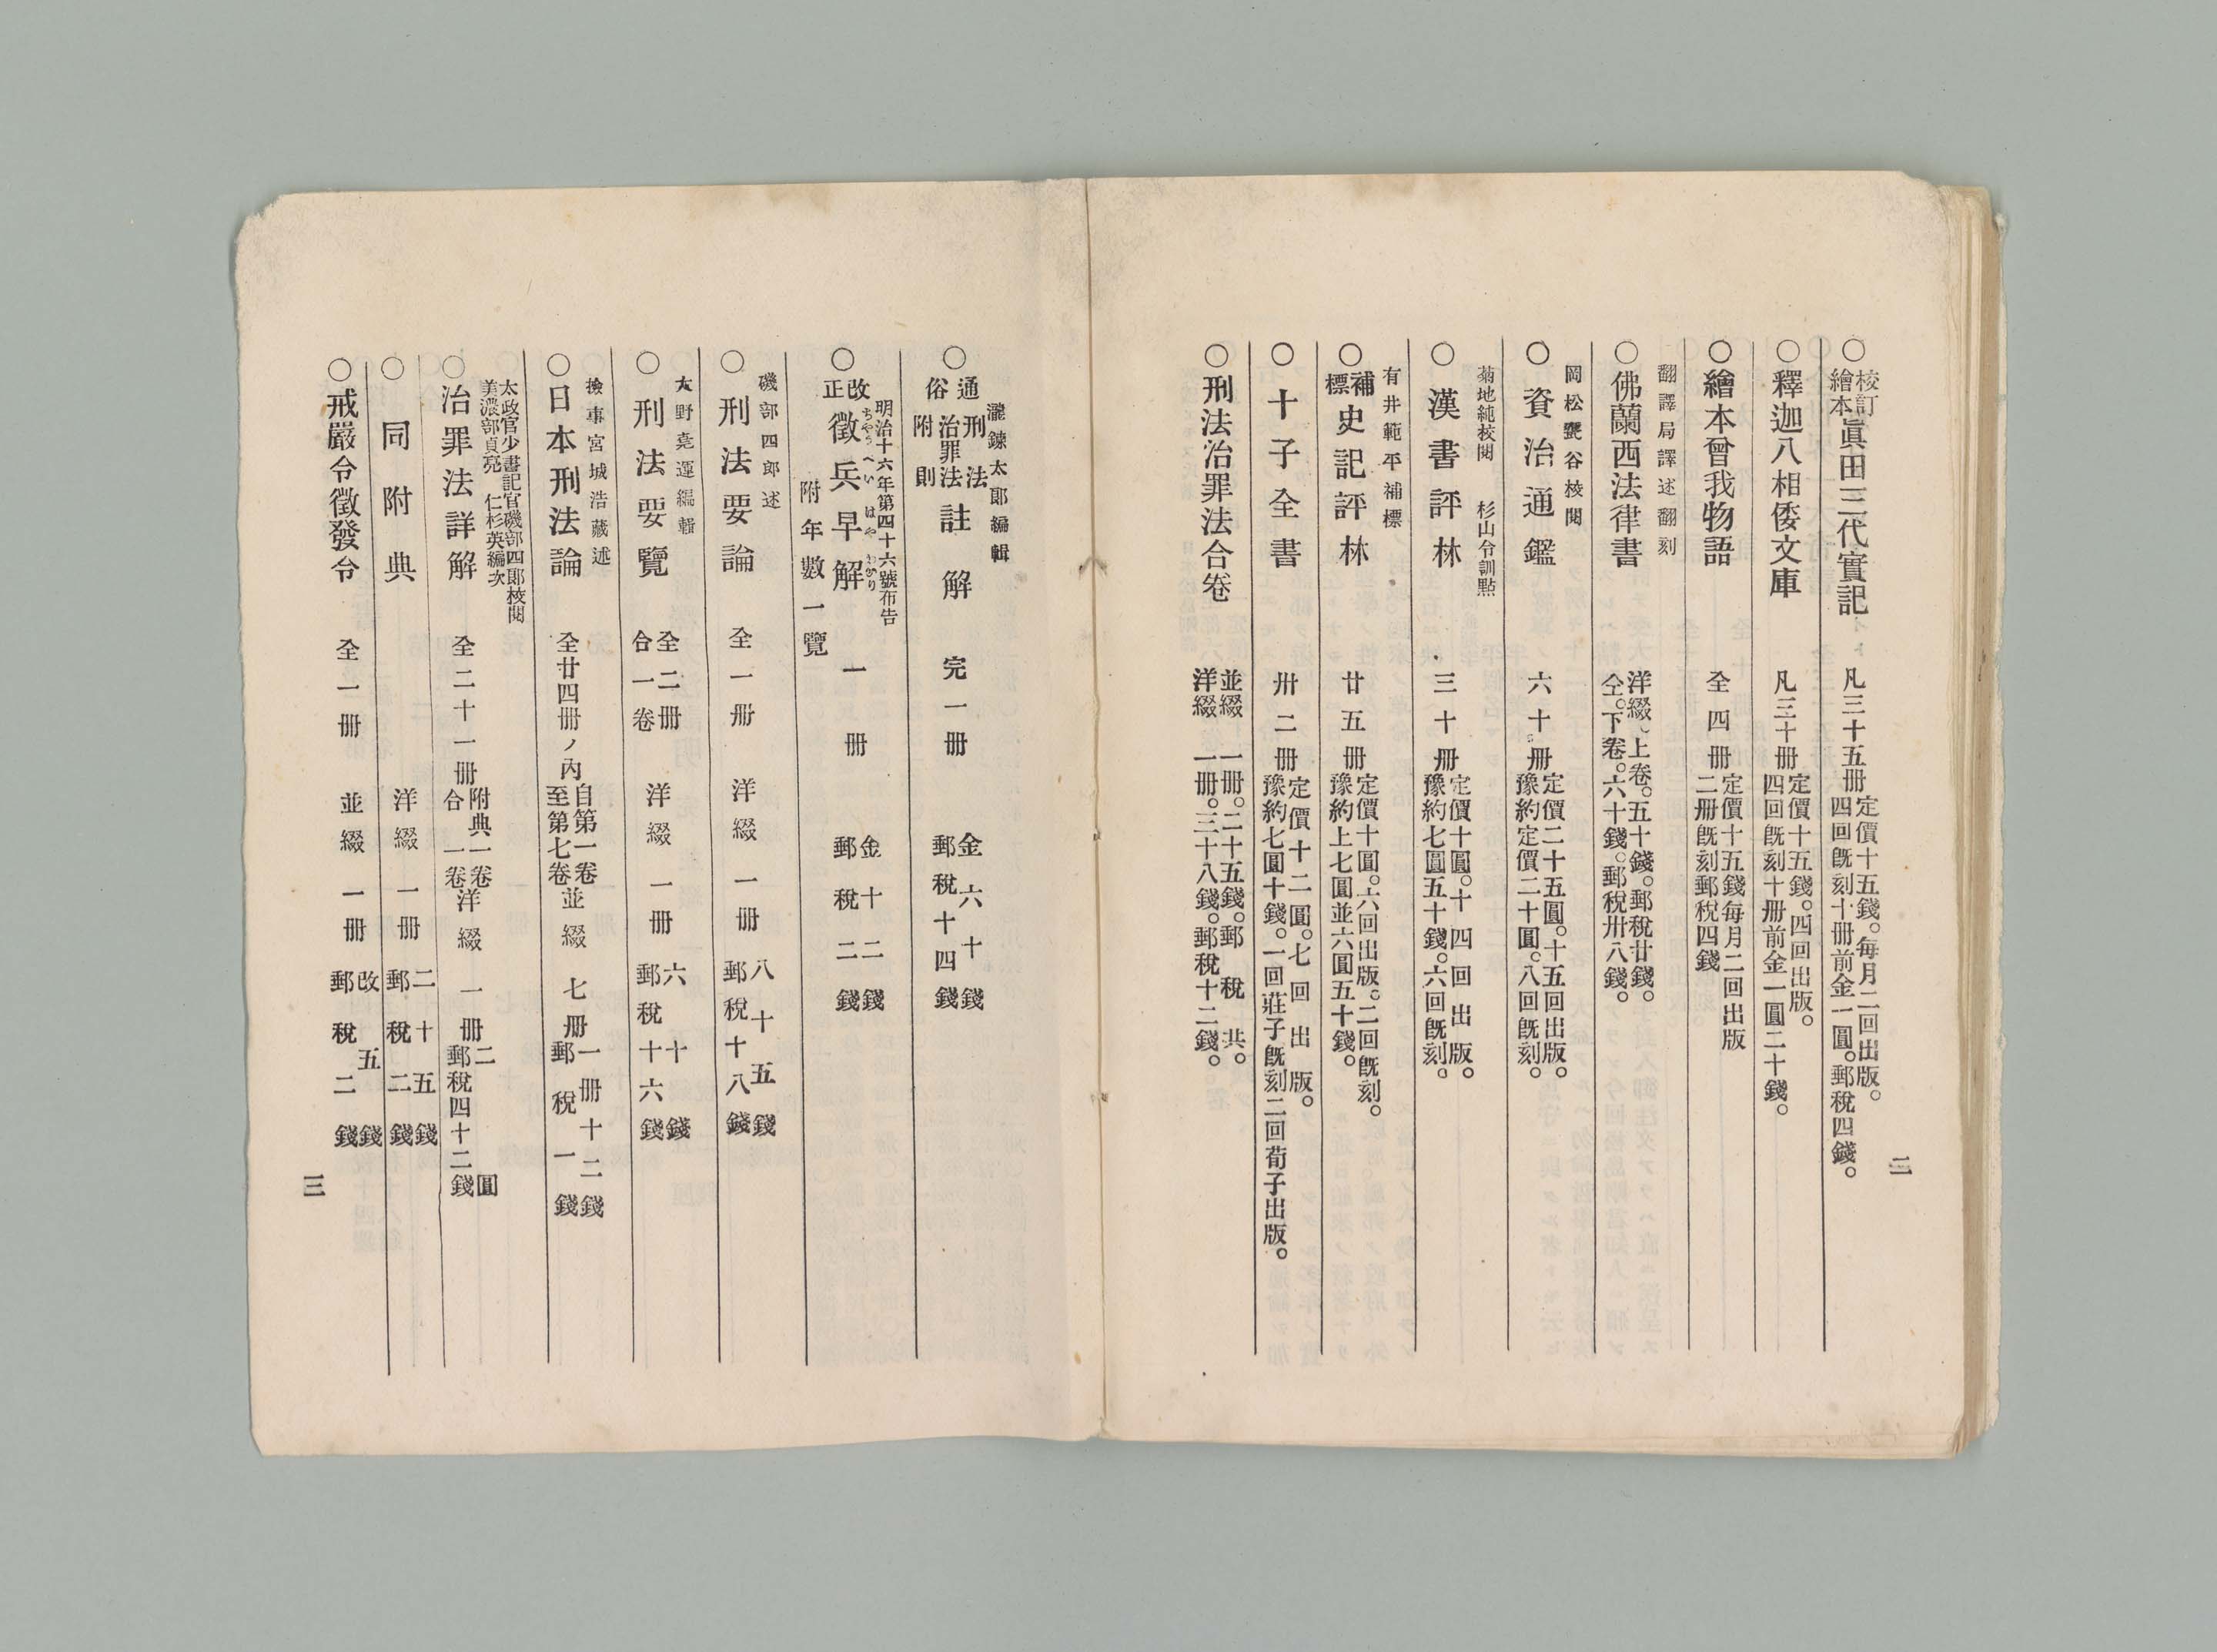 二
○校訂繪本眞田三代實記 凡三十五册 定價十五錢。每月二回出版。四回既刻十册前金一圓。郵稅四錢。
○釋迦八相倭文庫 凡三十册 定價十五錢。四回出版。四回既刻十册前金一圓二十錢。
○繪本曾我物語 全四册 定價十五錢每月二回出版二册既刻郵稅四錢
飜譯局譯述翻刻
○佛蘭西法律書 洋綴、上卷。五十錢。郵稅廿錢。仝。下卷。六十錢。郵稅卅八錢。
岡松甕谷校閱
○資治通鑑 六十册 定價二十五圓。十五回出版。豫約定價二十圓。八回既刻。
菊地純校閱 杉山令訓點
○漢書評林 三十册 定價十圓。十四回出版。豫約七圓五十錢。六回既刻。
有井範平補標
○補標史記評林 廿五册 定價十圓。六回出版。二回既刻。豫約上七圓並六圓五十錢。
○十子全書 卅二册 定價十二圓。七回出版。豫約七圓十錢。一回莊子既刻二回荀子出版。
○刑法治罪法合卷 並綴 一册。二十五錢。郵稅共。洋綴 一册。三十八錢。郵稅十二錢。
瀧錬太郎編輯
○通俗刑法治罪法附則註解 完一册 金六十錢郵稅十四錢
明治十六年第四十六號布告
○改正徵兵早解 一册 金十二錢郵稅二錢
ちやうへいはやわかり
附年數一覽
磯部四郎述
○刑法要論 全一册 洋綴一册 八十五錢郵稅十八錢
大野堯運編輯
○刑法要覽 全二册合一卷 洋綴一册 六十錢郵稅十六錢
撿事宮城浩藏述
○日本刑法論 全廿四册ノ內自第一卷至第七卷 並綴七册 一册十二錢郵稅一錢
太政官少書記官磯部四郎校閱
美濃部貞亮 仁杉英編次
○治罪法詳解 全二十一册附典一卷合一卷 洋綴一册 二圓郵稅四十二錢
○同附典 洋綴一册 二十五錢郵稅二錢
○戒嚴令徵發令 全一册 並綴一册 改五錢郵稅二錢
三